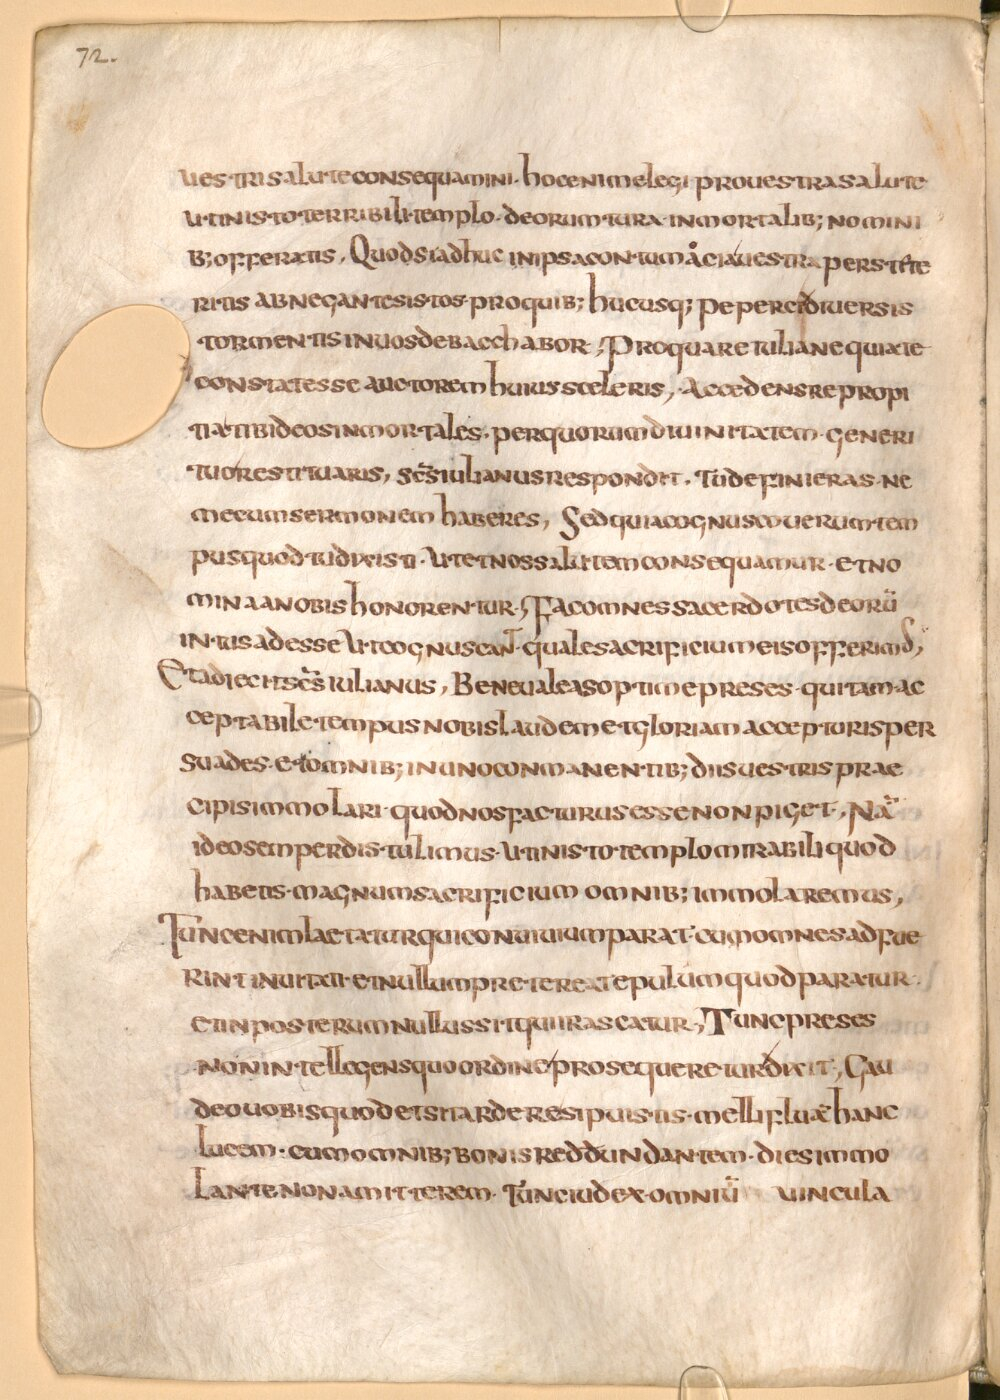 72.
uestrisalute consequamini. hoc enim elegi pro uestra salute
ut in isto terribili templo. deorum iura inmortalib; nomini
b; offeratis, Quod si adhuc in ipsa contumacia uestra perstete
ritis ab negantes istos pro quib; hucusq; peperci diuersis
tormentis in uos debacchabor, Pro qua re iuliane quia te
constat esse auctorem huius sceleris, Accedens repropi
tia tibi deos inmortales. per quorum diuinitatem generi
tuo restituaris, sc̄s iulianus respondit. Tu definieras ne
mecum sermonem haberes, Sed quia cognusco uerum tem
pus quod tu dixisti. Ut et nos salutem consequamur. et no
mina a nobis honorentur, Fac omnes sacerdotes deorū
intus adesse Ut cognuscant quale sacrificium eis offerimus,
Et adiecit sc̄s iulianus, Bene ualeas optime preses. qui tam ac
ceptabile tempus nobis laudem et gloriam accepturis per
suades. et omnib; in uno conmanentib; diis uestris prae
cipis immolari. quod nos facturus esse non piget, Nā
ideo semper distulimus. Ut in isto templo mirabili quod
habetis. magnum sacrificium omnib; immolaremus,
Tunc enim laetatur qui conuiuium parat. cum omnes adfue
rint inuitati. et nullum pretereat epulum quod paratur.
et in posterum nullus sit qui irascatur, Tunc preses
non intellegens quo ordine prosequeretur dixit, Gau
deo uobis quod etsi tarde resipuistis. mellifluā hanc
lucem. cum omnib; bonis reddundantem. dies immo
lante non amitterem. Tunc iudex omniū uincula